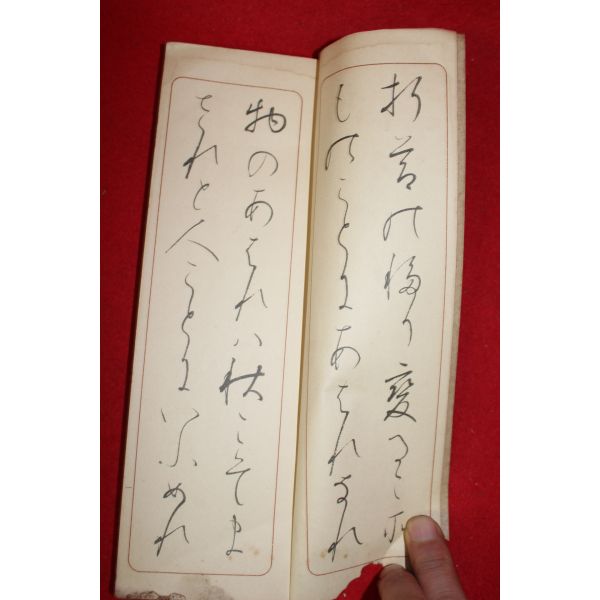 折節の移り変るこそ
ものことにあはれなれ
物のあはれハ秋こそま
されと人ことにいふめれ